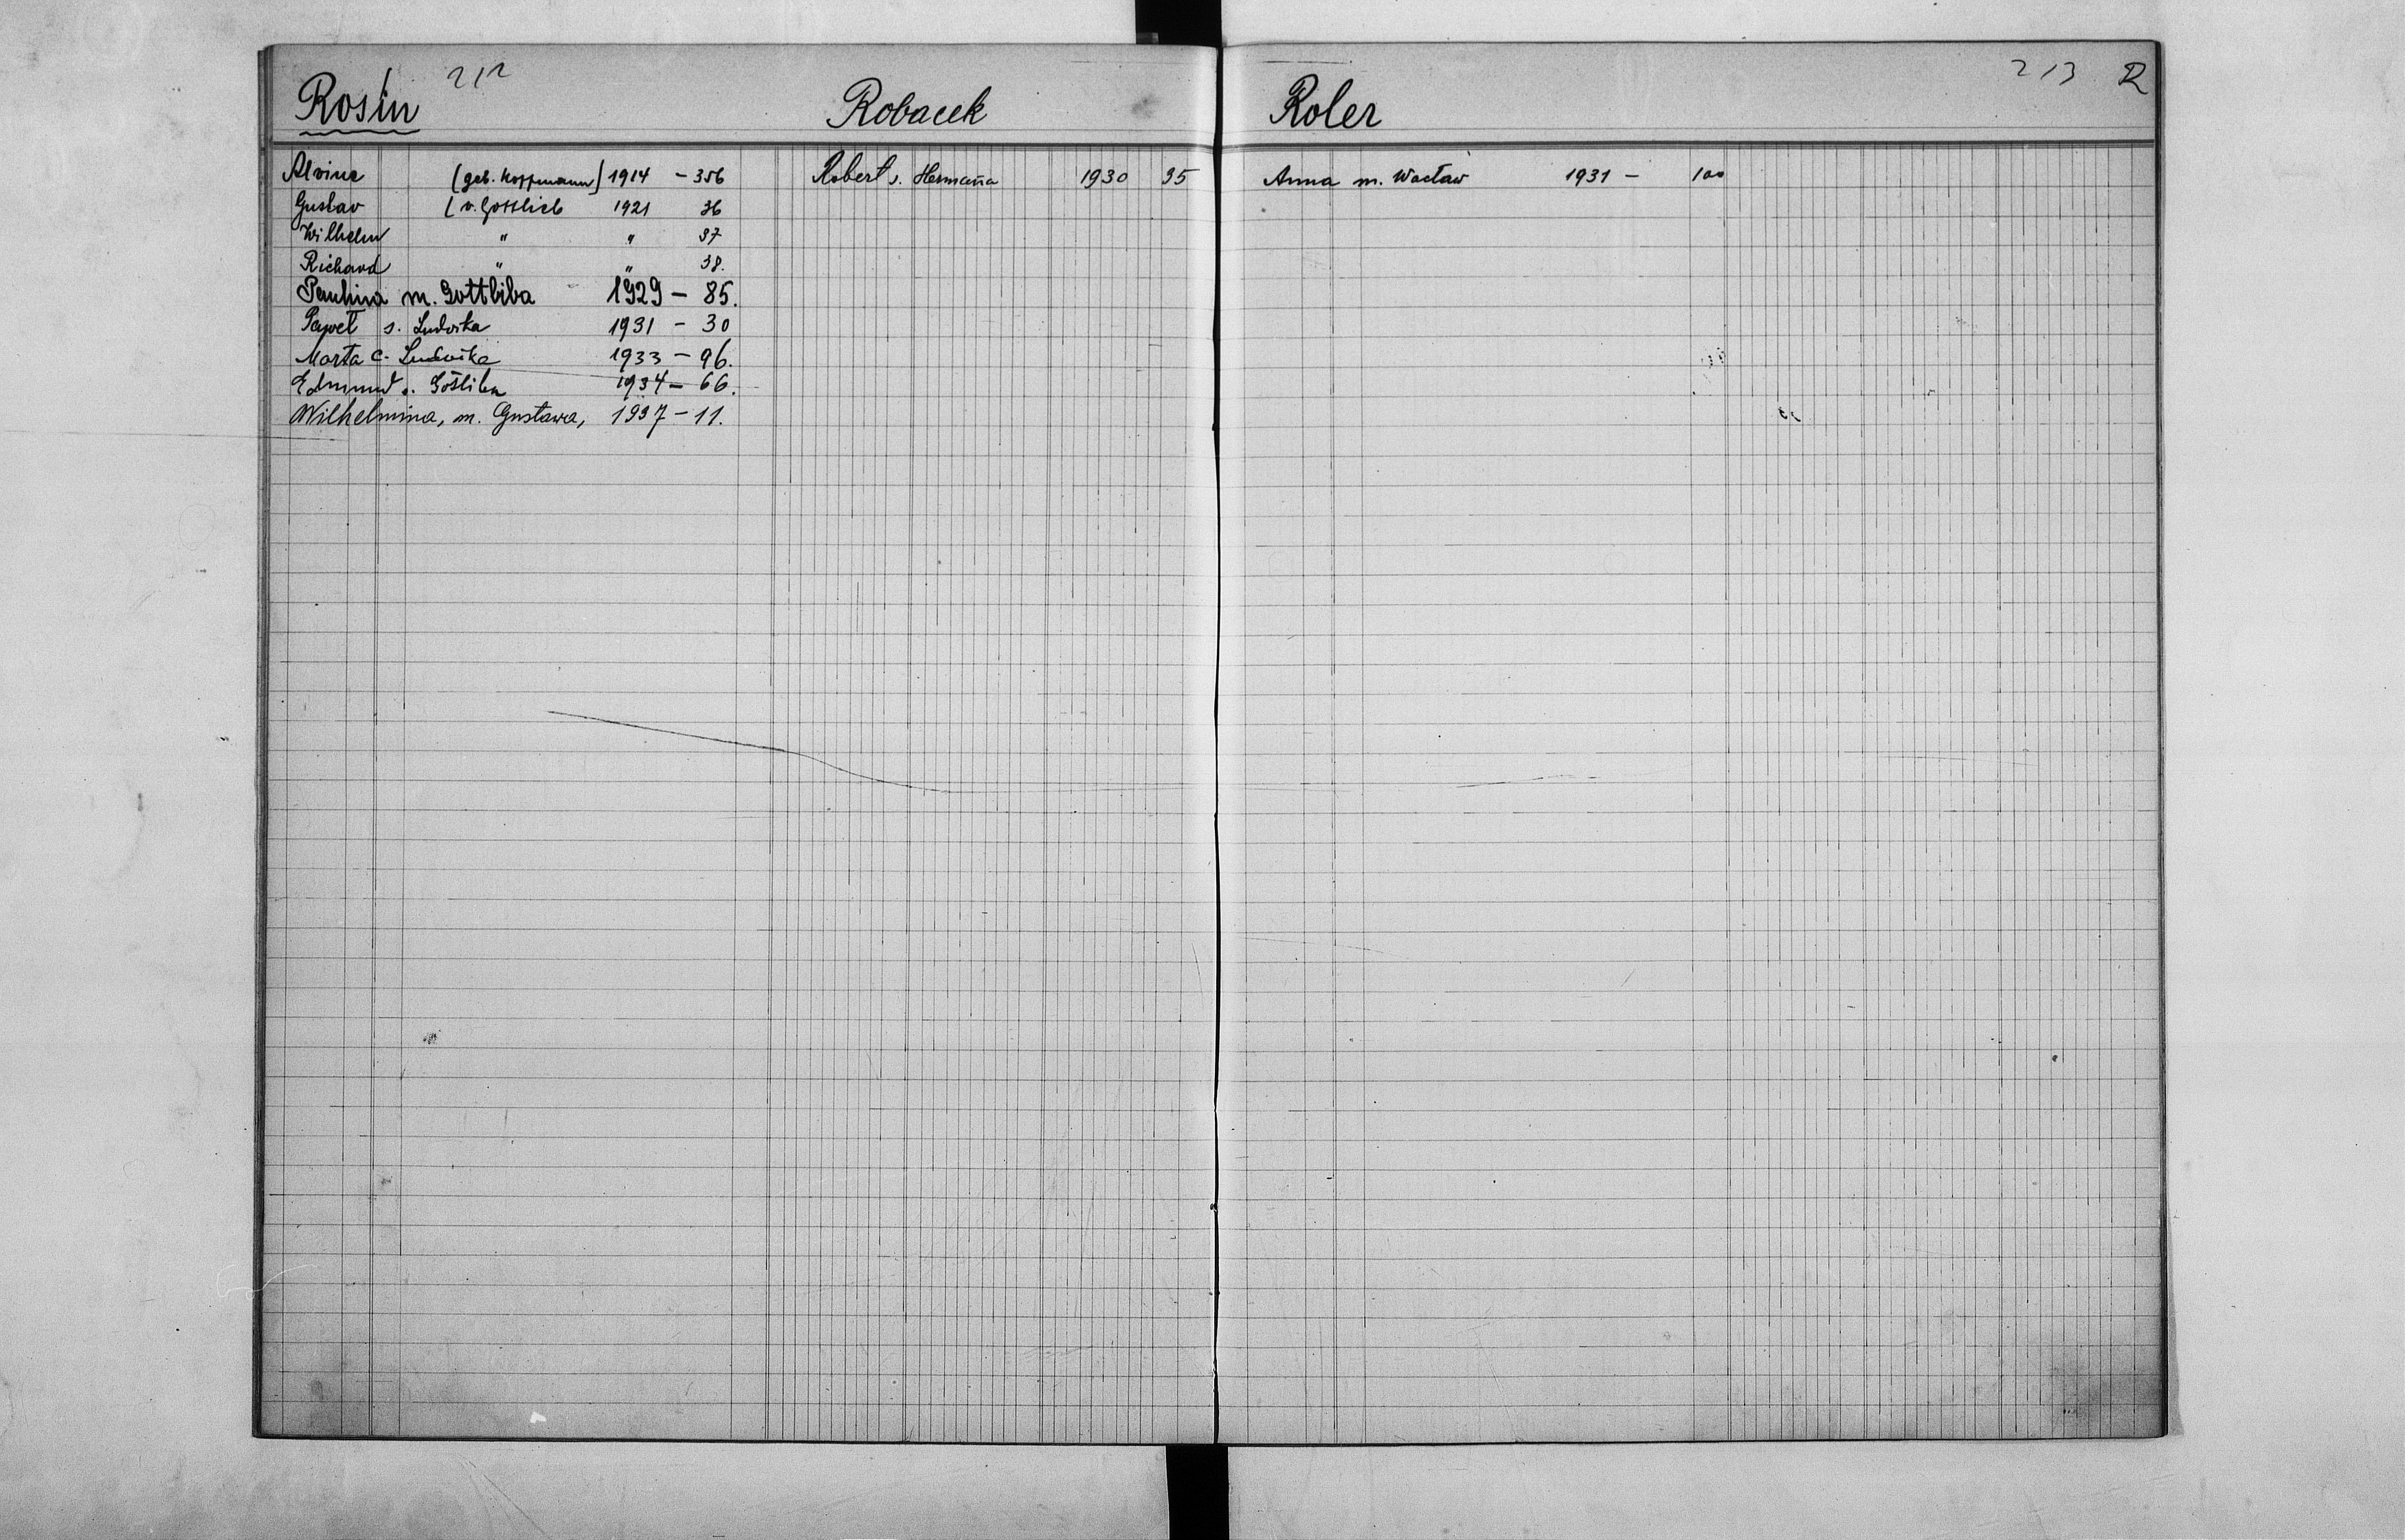 212
Rosin
Alvine (geb. Hoffmann) 1914 - 356
Gustav (v. Gottlieb 1921 36
Wilhelm " " 37
Richard " " 38.
Paulina m. Gottliba 1929 - 85.
Paweł s. Ludwika 1931 - 30
Marta c. Ludwika 1933 - 96.
Edmund s. Gotliba 1934 - 66.
Wilhelmina, m. Gustawa, 1937 - 11.
Robacek
Robert s. Hermana 1930 35
213 R
Roler
Anna m. Wacław 1931 - 100